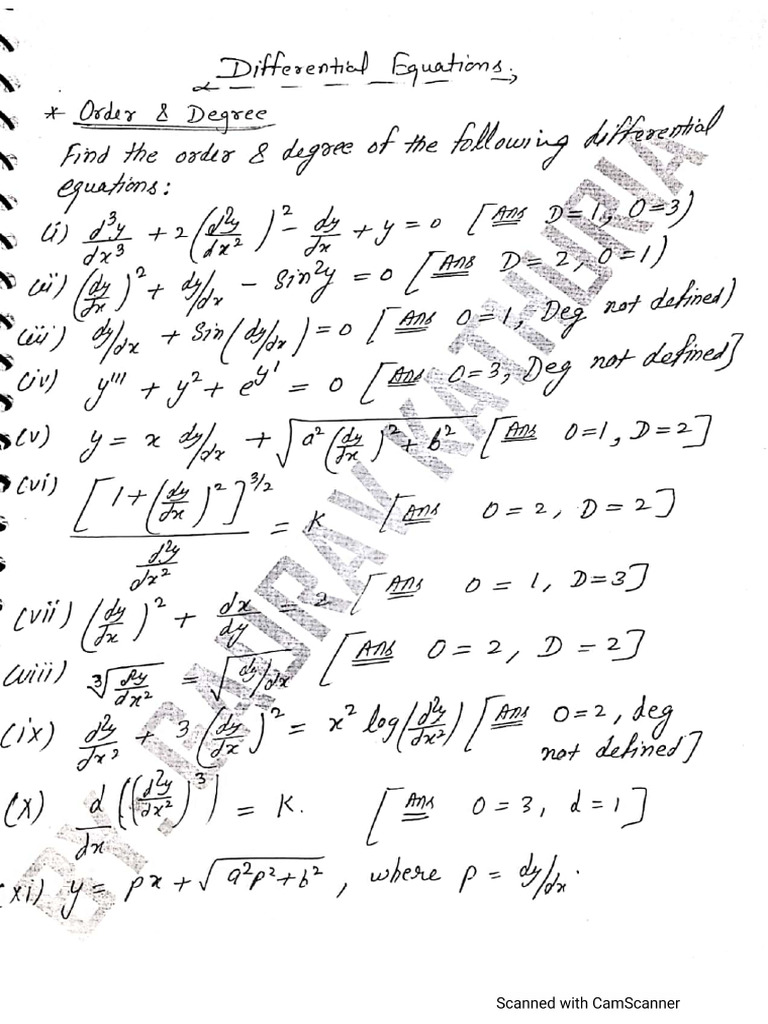 Differential Equations.
* Order & Degree
Find the order & degree of the following differential
equations:
(i) d³y/dx³ + 2(d²y/dx²)² - dy/dx + y = 0 [Ans D=1, O=3)
(ii) (dy/dx)² + dy/dx - Sin²y = 0 [Ans D=2, O=1)
(iii) dy/dx + Sin(dy/dx) = 0 [Ans O=1, Deg not defined)
(iv) y''' + y² + e^y' = 0 [Ans O=3, Deg not defined]
(v) y = x dy/dx + √(a²(dy/dx)² + b²) [Ans O=1, D=2]
(vi) [1+(dy/dx)²]^3/2 / d²y/dx² = K [Ans O=2, D=2]
(vii) (dy/dx)² + dx/dy = 2 [Ans O=1, D=3]
(viii) ∛(d²y/dx²) = √(dy/dx) [Ans O=2, D=2]
(ix) d²y/dx² + 3(dy/dx)² = x² log(d²y/dx²) [Ans O=2, deg
not defined]
(x) d/dx((d²y/dx²)³) = K. [Ans O=3, d=1]
(xi) y = px + √(a²p²+b²), where p = dy/dx.
BY: GAURAV KATHURIA
Scanned with CamScanner